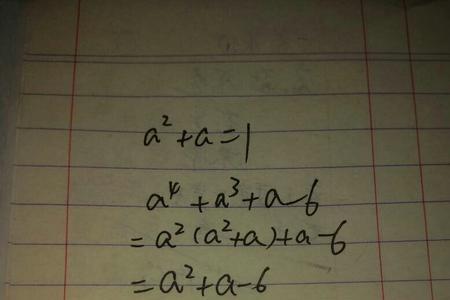 a²+a=1
a⁴+a³+a-6
=a²(a²+a)+a-6
=a²+a-6